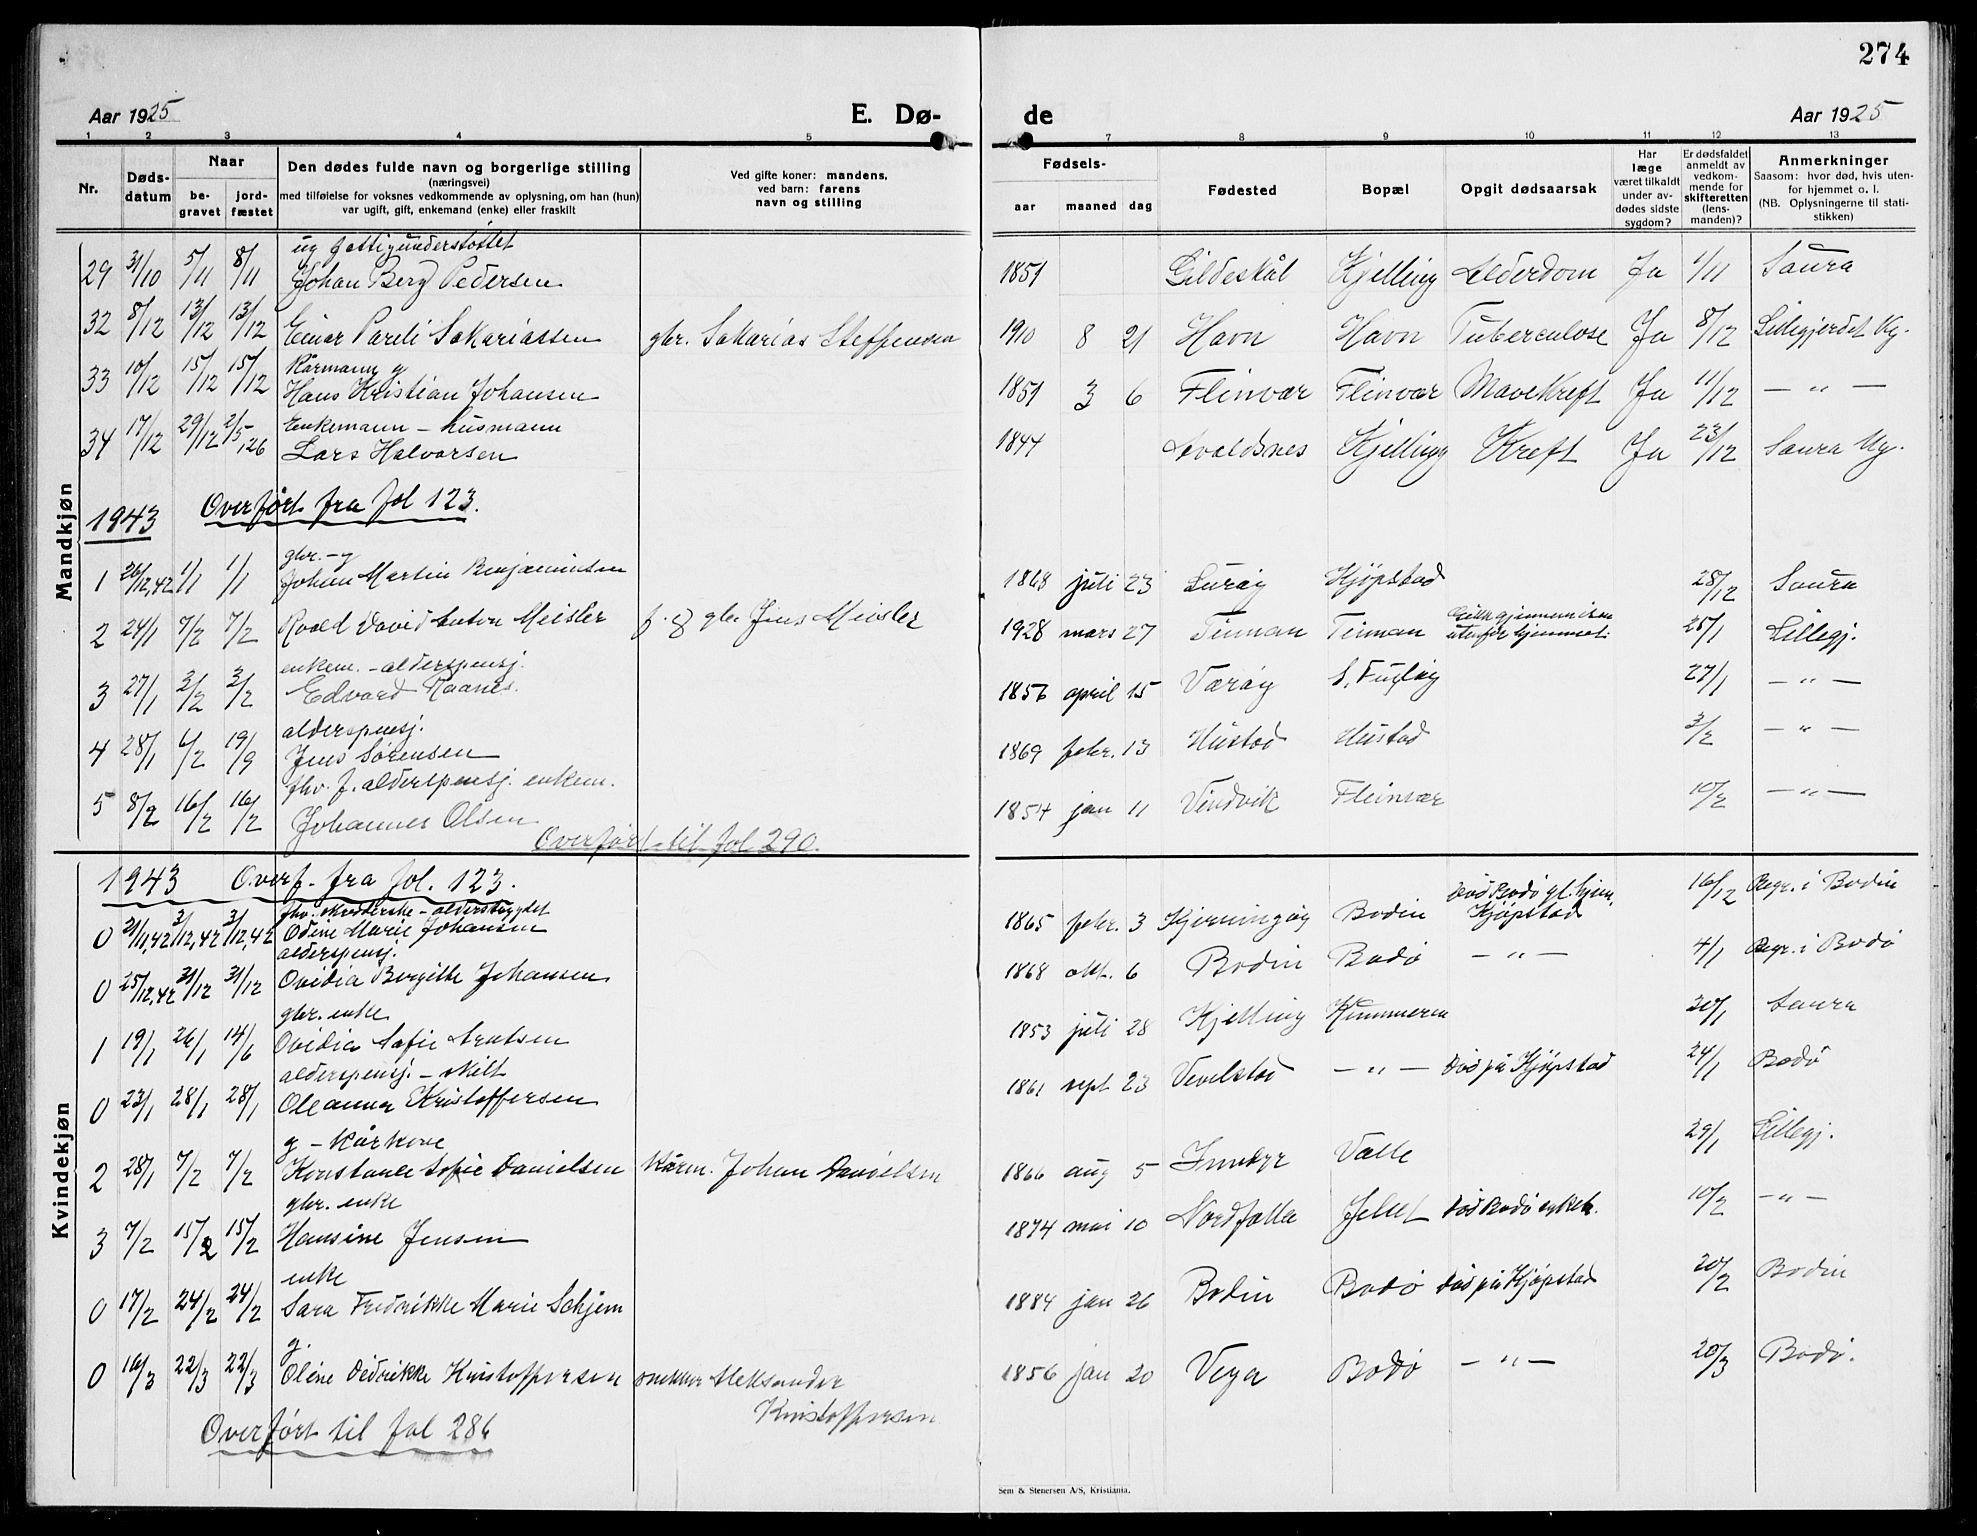 274
Aar 1925 E. Dø- de Aar 1925
1 2 3 4 5 7 8 9 10 11 12 13
Nr. Døds-datum Naar be-gravet jord-fæstet Den dødes fulde navn og borgerlige stilling (næringsvei) med tilføielse for voksnes vedkommende av oplysning, om han (hun) var ugift, gift, enkemand (enke) eller fraskilt Ved gifte koner: mandens, ved barn: farens navn og stilling Fødsels- aar maaned dag Fødested Bopæl Opgit dødsaarsak Har læge været tilkaldt under av-dødes sidste sygdom? Er dødsfaldet anmeldt av vedkom-mende for skifteretten (lens-manden)? Anmerkninger Saasom: hvor død, hvis uten-for hjemmet o. l. (NB. Oplysningerne til stati-stikken)
Mandkjøn
ug fattigunderstøttet
29 31/10 5/11 8/11 Johan Berg Pedersen 1851 Gildeskål Kjelling Alderdom Ja 1/11 Saura
32 8/12 13/12 13/12 Einar Pareli Sakariassen gbr. Sakarias Steffensen 1910 8 21 Havn Havn Tuberculose Ja 8/12 Lillegjerdet Ug.
Kårmann g
33 10/12 15/12 15/12 Hans Kristian Johansen 1851 3 6 Fleinvær Fleinvær Mavekreft Ja 11/12 — " —
Enkemann - husmann
34 17/12 29/12 2/5,26 Lars Halvorsen 1844 Avaldsnes Kjelling Kreft Ja 23/12 Saura Ug.
1943 Overført fra fol 123.
gbr. - g
1 26/12,42 1/1 1/1 Johan Martin Benjaminsen 1868 juli 23 Lurøy Kjøpstad 28/12 Saura
2 24/1 7/2 7/2 Roald David Anton Meisler gbr. Jens Meisler 1928 mars 27 Tinnan Tinnan utenfor hjemmet. 25/1 Lillegj.
enkem. - alderspensj.
3 27/1 3/2 3/2 Edvard Raanes. 1856 april 15 Værøy S. Fugløy 27/1 — " —
alderspensj.
4 28/1 6/2 19/9 Jens Sørensen 1869 febr. 13 Hustad Hustad 3/2 — " —
fhv. f. alderspensj. enkem.
5 8/2 16/2 16/2 Johannes Olsen 1854 jan 11 Vindvik Fleinvær 10/2 — " —
Overført til fol 290.
Kvindekjøn
1943 Overf. fra fol. 123.
alderstrygdet
0 21/11,42 3/12,42 3/12,42 Odine Marie Johansen 1865 febr. 3 Kjerringøy Bodin Død Bodø gl. hjem, Kjøpstad 16/12 Begr. i Bodin
alderspensj.
0 25/12,42 31/12 31/12 Ovidia Bergitte Johansen 1868 okt. 6 Bodin Bodø — " — 4/1 Begr. i Bodø
gbr. enke
1 19/1 26/1 14/6 Ovidia Sofie Arntsen 1853 juli 28 Kjelling 20/1 Saura
alderspensj. - skilt
0 23/1 28/1 28/1 Oleanna Kristoffersen 1861 sept 23 Vevelstad — " — Død på Kjøpstad 24/1 Bodø
g - kårkone
2 28/1 7/2 7/2 Konstanse Sofie Danielsen Kårm. Johan Danielsen 1866 aug 5 Inndyr Valle 29/1 Lillegj.
gbr. enke
3 7/2 15/2 15/2 Hansine Jensen 1874 mai 10 Nordfolla Død Bodø sykeh. 10/2 — " —
enke
0 17/2 24/2 24/2 Sara Fredrikke Marie Schjem 1884 jan 26 Bodin Bodø Død på Kjøpstad 20/2 Bodin
g.
0 16/3 22/3 22/3 Oline Didrikke Kristoffersen snekker Aleksander Kristoffersen 1856 jan 20 Vega Bodø — " — 20/3 Bodø.
Overført til fol 286
Sem & Stenersen A/S, Kristiania.